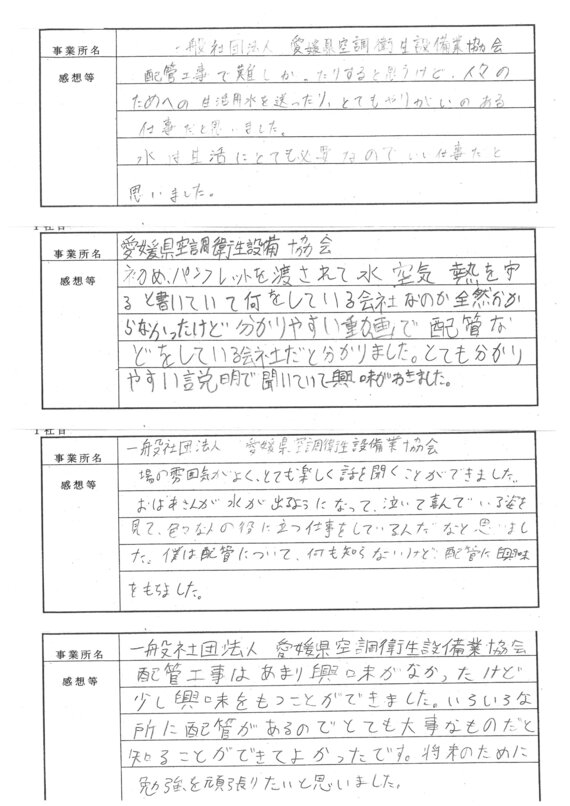 事業所名
一般社団法人 愛媛県空調衛生設備業協会
感想等
配管工事で難しかったりすると思うけど、人々の
ためへの生活用水を送ったり、とてもやりがいのある
仕事だと思いました。
水は生活にとても必要なのでいい仕事だと
思いました。
1社目
事業所名
愛媛県空調衛生設備協会
感想等
初め、パンフレットを渡されて水 空気 熱を守
ると書いていて何をしている会社なのか全然分か
らなかったけど分かりやすい動画で配管な
どをしている会社だと分かりました。とても分かり
やすい説明で聞いていて興味がわきました。
1社目
事業所名
一般社団法人 愛媛県空調衛生設備業協会
感想等
場の雰囲気がよく、とても楽しく話を聞くことができました。
おばあさんが水が出るようになって、泣いて喜んでいる姿を
見て、色々な人の役に立つ仕事をしている人だなと思いまし
た。僕は配管について、何も知らないけど配管に興味
をもちました。
事業所名
一般社団法人 愛媛県空調衛生設備業協会
感想等
配管工事はあまり興味がなかったけど
少し興味をもつことができました。いろいろな
所に配管があるのでとても大事なものだと
知ることができてよかったです。将来のために
勉強を頑張りたいと思いました。